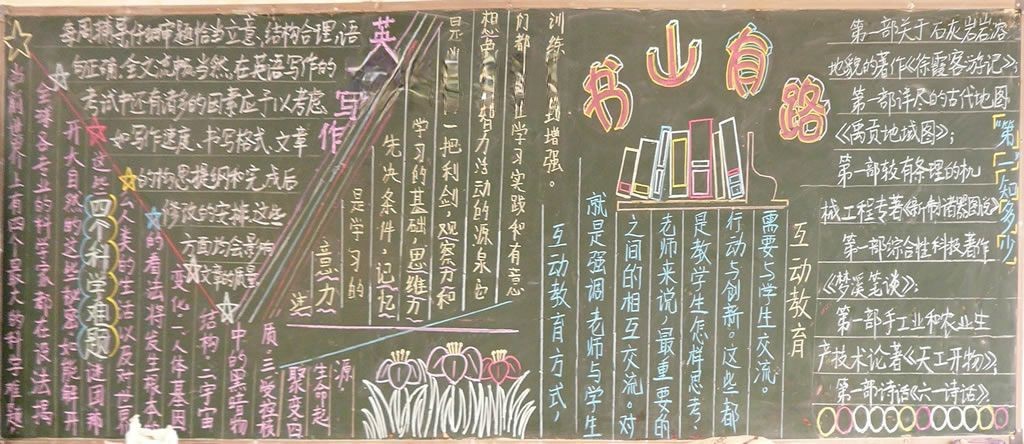 英写作
每周辅导仔细审题恰当立意、结构合理、语
句正确、全文流畅当然,在英语写作的
考试中还有诸多的因素应予以考虑
如写作速度、书写格式、文章
的构思提纲和完成后
修改的安排、这些
方面均会影响
文章的质量
四个科学难题
当前世界上有四个最大的科学难题
全球各专业的科学家都在设法揭
开大自然的这些秘密如能解开
这些
谜团那
么人类的生活以及对世界
的看法将发生根本的
变化一人体基因
结构二宇宙
中的黑暗物
质,三受控核
聚变四
生命起
源
注
意力
是学习的
先决条件,记忆
学习的基础,思维
一把利剑,观察力和
想象
智力活动的源泉
都
学习实践和有意
训练
到增强。
书山有路
互动教育
需要与学生交流。
行动与创新。这些都
是教学生怎样思考?
老师来说,最重要的
之间的相互交流。对
就是强调老师与学生
互动教育方式,
“第一”知多少
第一部关于石灰岩岩溶
地貌的著作《徐霞客游记》;
第一部详尽的古代地图
《禹贡地域图》;
第一部较有条理的机
械工程专著《新制诸器图说》
第一部综合性科技著作
《梦溪笔谈》;
第一部手工业和农业生
产技术论著《天工开物》;
第一部诗话《六一诗话》。